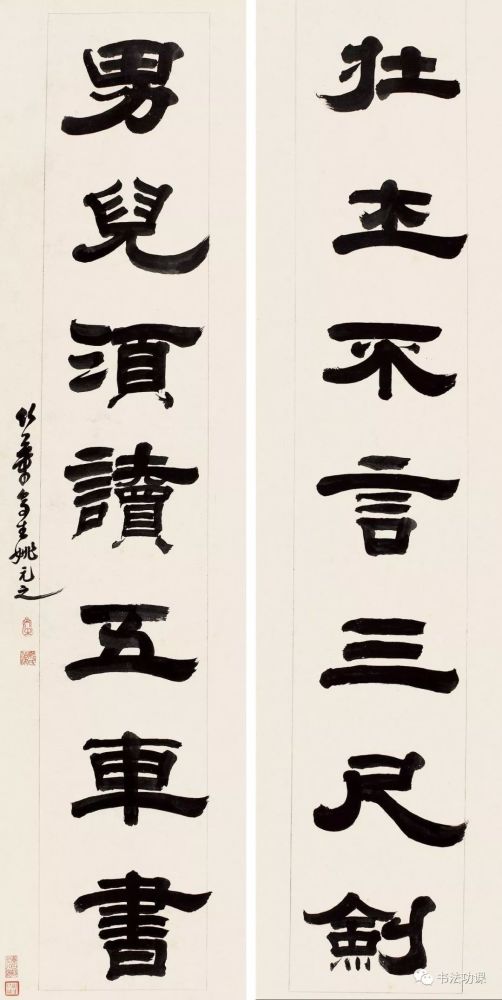 壯士不言三尺劍
男兒須讀五車書
竹葉亭生姚元之
书法功课